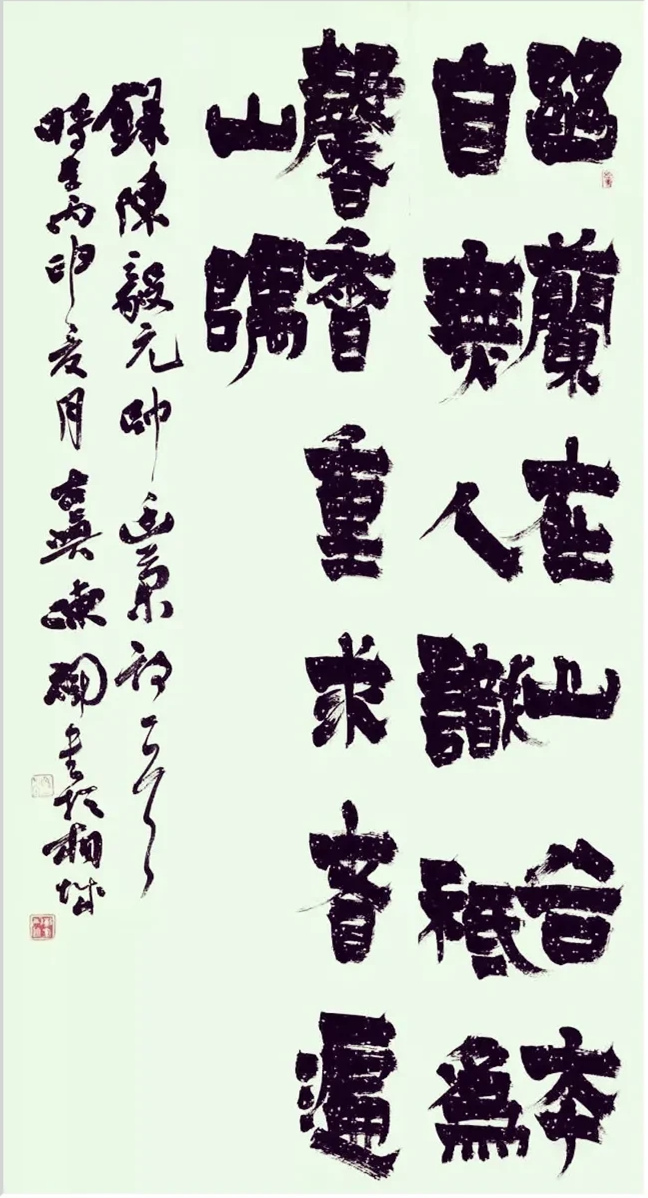 幽蘭在山谷本
自無人識祇為
馨香重求者遍
山隅
錄陳毅元帥幽蘭詩一首
時在丙申夏月古吳陳書於相城